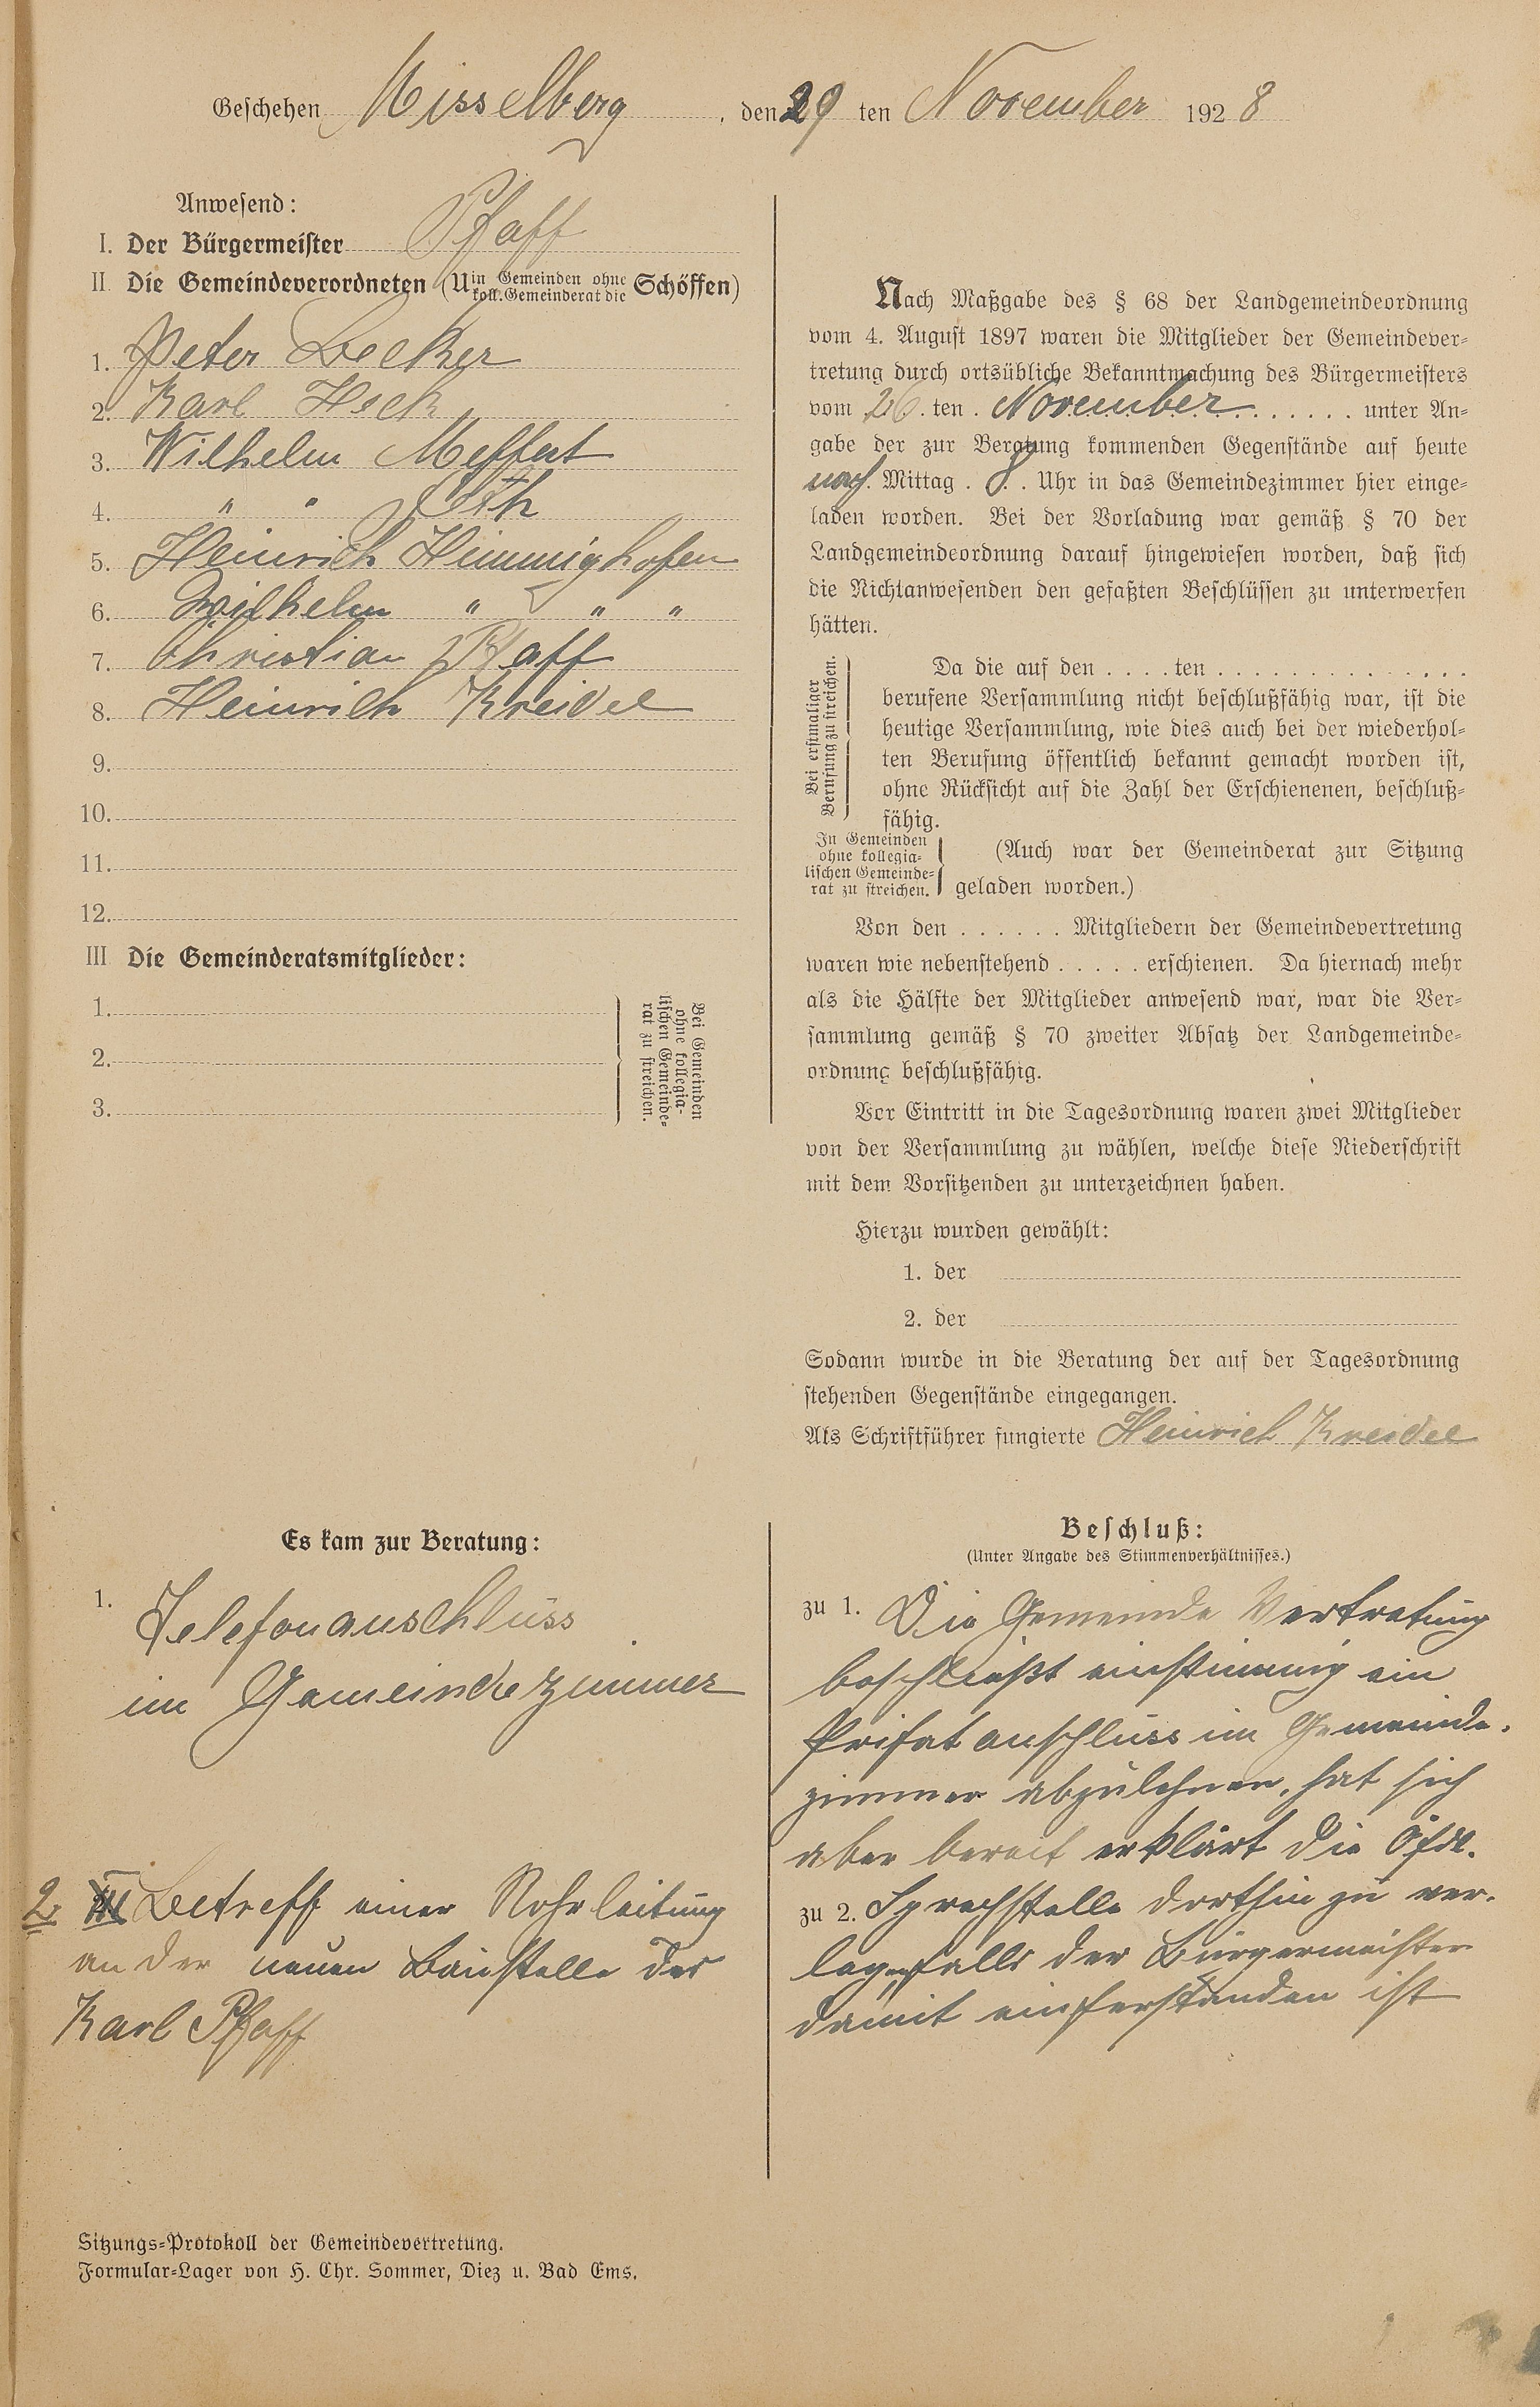 Geschehen Misselberg, den 29 ten November 1928
Anwesend:
I. Der Bürgermeister Pfaff
II. Die Gemeindeverordneten (U in Gemeinden ohne koll. Gemeinderat die Schöffen)
1. Peter Becker
2. Karl Heck
3. Wilhelm Meffert
4. " "
5. Heinrich Himmighofen
6. Wilhelm " " "
7. Christian Pfaff
8. Heinrich Kreidel
9.
10.
11.
12.
III Die Gemeinderatsmitglieder:
1.
2.
3.
Bei Gemeinden
ohne kollegia-
lischen Gemeinde-
rat zu streichen.
Nach Maßgabe des § 68 der Landgemeindeordnung
vom 4. August 1897 waren die Mitglieder der Gemeindever-
tretung durch ortsübliche Bekanntmachung des Bürgermeisters
vom 26. ten. November unter An-
gabe der zur Beratung kommenden Gegenstände auf heute
nach. Mittag. 8. Uhr in das Gemeindezimmer hier einge-
laden worden. Bei der Vorladung war gemäß § 70 der
Landgemeindeordnung darauf hingewiesen worden, daß sich
die Nichtanwesenden den gefaßten Beschlüssen zu unterwerfen
hätten.
Bei erstmaliger
Berufung zu streichen.
Da die auf den . . . . ten . . . . . . . . . . . . . .
berufene Versammlung nicht beschlußfähig war, ist die
heutige Versammlung, wie dies auch bei der wiederhol-
ten Berufung öffentlich bekannt gemacht worden ist,
ohne Rücksicht auf die Zahl der Erschienenen, beschluß-
fähig.
In Gemeinden
ohne kollegia-
lischen Gemeinde-
rat zu streichen.
(Auch war der Gemeinderat zur Sitzung
geladen worden.)
Von den . . . . . . Mitgliedern der Gemeindevertretung
waren wie nebenstehend . . . . . erschienen. Da hiernach mehr
als die Hälfte der Mitglieder anwesend war, war die Ver-
sammlung gemäß § 70 zweiter Absatz der Landgemeinde-
ordnung beschlußfähig.
Vor Eintritt in die Tagesordnung waren zwei Mitglieder
von der Versammlung zu wählen, welche diese Niederschrift
mit dem Vorsitzenden zu unterzeichnen haben.
Hierzu wurden gewählt:
1. der
2. der
Sodann wurde in die Beratung der auf der Tagesordnung
stehenden Gegenstände eingegangen.
Als Schriftführer fungierte Heinrich Kreidel
Es kam zur Beratung:
1. Telefonanschluss
im Gemeindezimmer
2. Betreff einer Rohrleitung
an der neuen Baustelle des
Karl Pfaff
Beschluß:
(Unter Angabe des Stimmenverhältnisses.)
zu 1. Die Gemeinde Vertretung
beschließt einstimmig ein
Prifatanschluss im Gemeinde-
zimmer abzulehnen, hat sich
aber bereit erklärt die
zu 2. Sprechstelle dorthin zu ver-
legen, falls der Bürgermeister
damit einferstanden ist
Sitzungs-Protokoll der Gemeindevertretung.
Formular-Lager von H. Chr. Sommer, Diez u. Bad Ems.